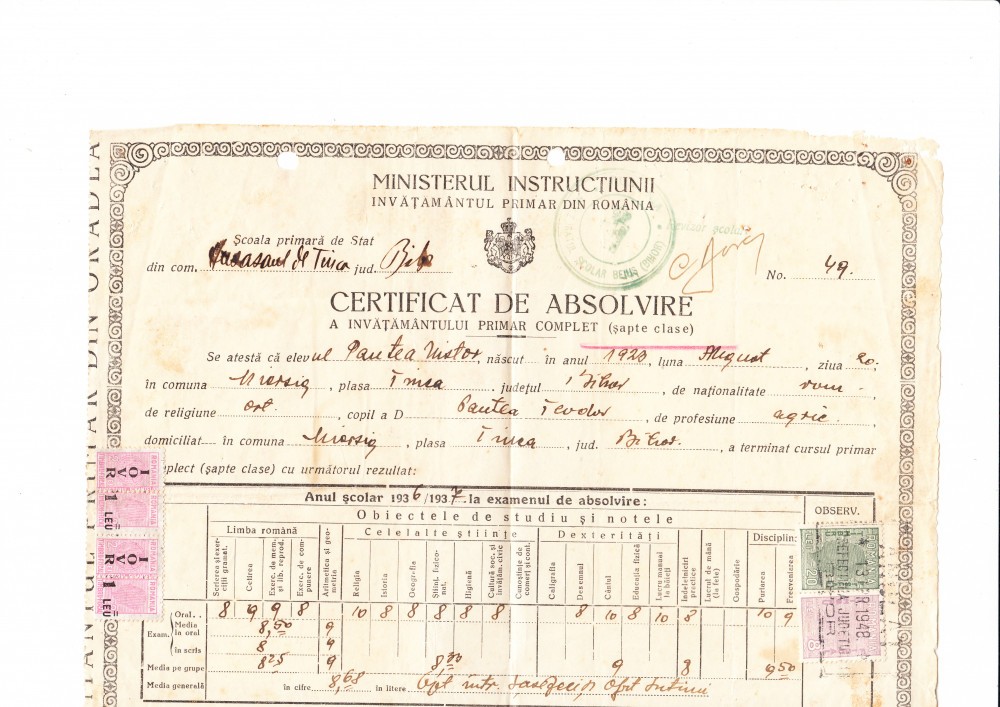 MINISTERUL INSTRUCȚIUNII
INVĂȚAMÂNTUL PRIMAR DIN ROMÂNIA
Revizor școlar
ȘCOLAR BEIUȘ (BIHOR)
Școala primară de Stat
din com. de Tinca jud. Bihor
No. 49.
CERTIFICAT DE ABSOLVIRE
A INVĂȚĂMÂNTULUI PRIMAR COMPLET (șapte clase)
Se atestă că elevul Pantea Nistor, născut în anul 1923, luna August ziua 20.
în comuna Miersig, plasa Tinca județul Bihor, de naționalitate rom.
de religiune ort., copil a D Pantea Teodor, de profesiune agric.
domiciliat în comuna Miersig, plasa Tinca, jud. Bihor, a terminat cursul primar
plect (șapte clase) cu următorul rezultat:
Anul școlar 1936/1937. la examenul de absolvire:
Obiectele de studiu și notele
OBSERV.
Limba română
Celelalte științe
Dexterități
Disciplin:
Scrierea și exerciții gramat.
Cetirea
Exerc. de mem. și lib. reprod.
Exerc. de compunere
Aritmetica și geometria
Religia
Istoria
Geografia
Științ. fizico-nat
Higiena
Cultura soc. și învățăm. civic
Cunoștințe de comerț și cont.
Caligrafia
Desemnul
Cântul
Educația fizică
Lucru manual la băieți
Indeletniciri practice
Lucrul de mână (la fete)
Gospodărie
Purtarea
Frecvenierea
Oral. . 8 9 9 8 10 8 8 8 8 8 8 10 8 10 8 10 9
Exam. Media la oral 8,50 9
în scris 8 9
Media pe grupe 8,25 9 8,30 9 8 9,50
Media generală în cifre 8,68 în litere Opt intr. sasezeci și opt sutimi
IOVR
1 LEU
IOVR
1 LEU
ROMANIA
20
8
1948